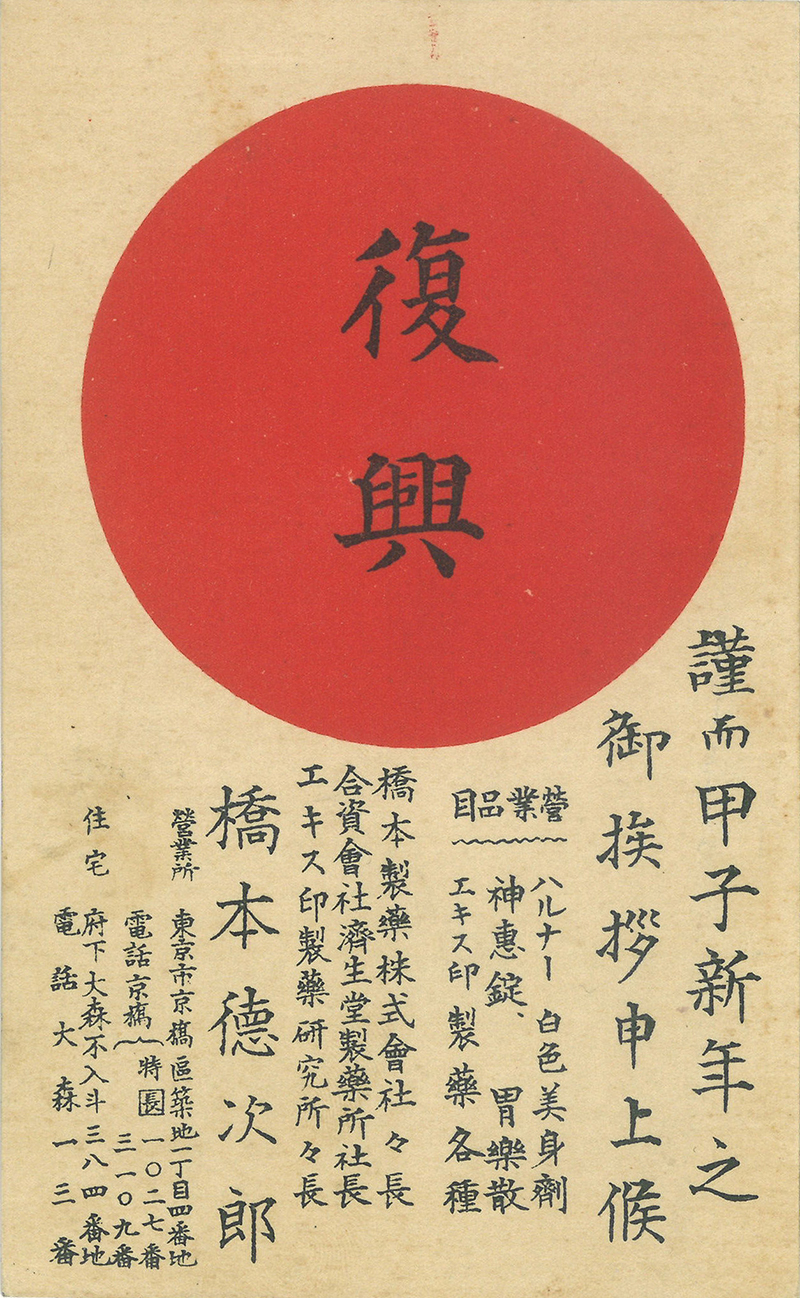 復興
謹而甲子新年之
御挨拶申上候
營業品目
ハルナー 白色美身劑
神惠錠、 胃樂散
エキス印製藥各種
橋本製藥株式會社々長
合資會社濟生堂製藥所社長
エキス印製藥研究所々長
橋本德次郎
營業所 東京市京橋區築地一丁目四番地
電話京橋 特長 一〇二七番
三一〇九番
住宅 府下大森不入斗三八四番地
電話大森一三番